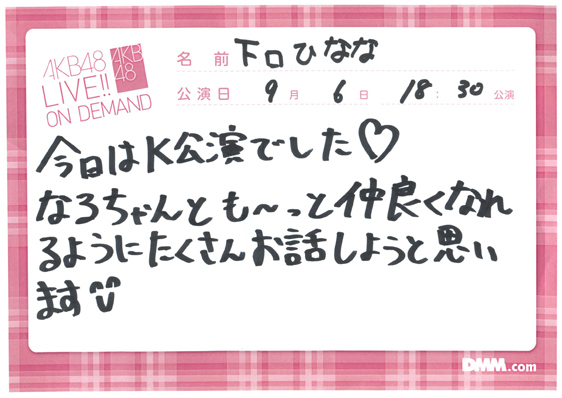 AKB48
LIVE!!
ON DEMAND
AKB
48
名前 下口ひなな
公演日 9月 6日 18:30 公演
今日はK公演でした♡
なるちゃんとも〜っと仲良くなれ
るようにたくさんお話しようと思い
ます
DMM.com